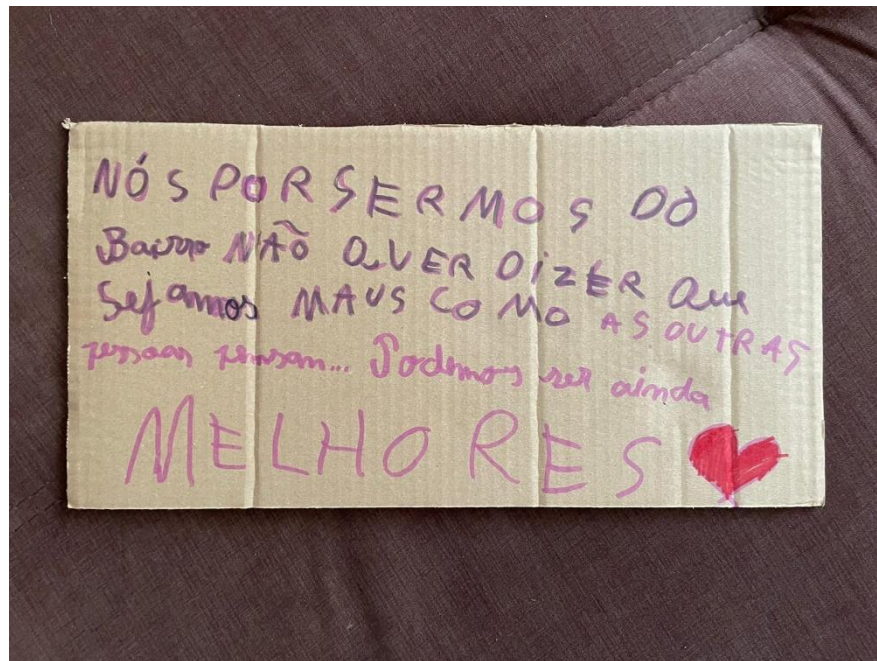 NÓS POR SERMOS DO
Bairro NÃO QUER DIZER Que
Sejamos MAUS COMO AS OUTRAS
pessoas pensam... Podemos ser ainda
MELHORES